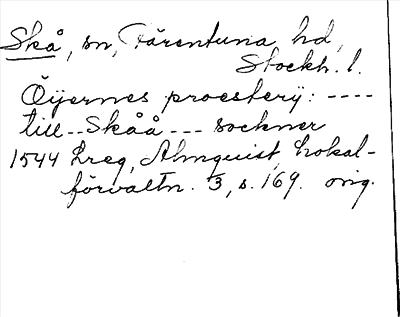 Skå, sn, Färentuna hd,
Stockh. l.
Öÿernes proesterÿ: ----
till -- Skåå --- sockner
1544 Lreg, Almquist, Lokal-
förvaltn. 3, s. 169. orig.